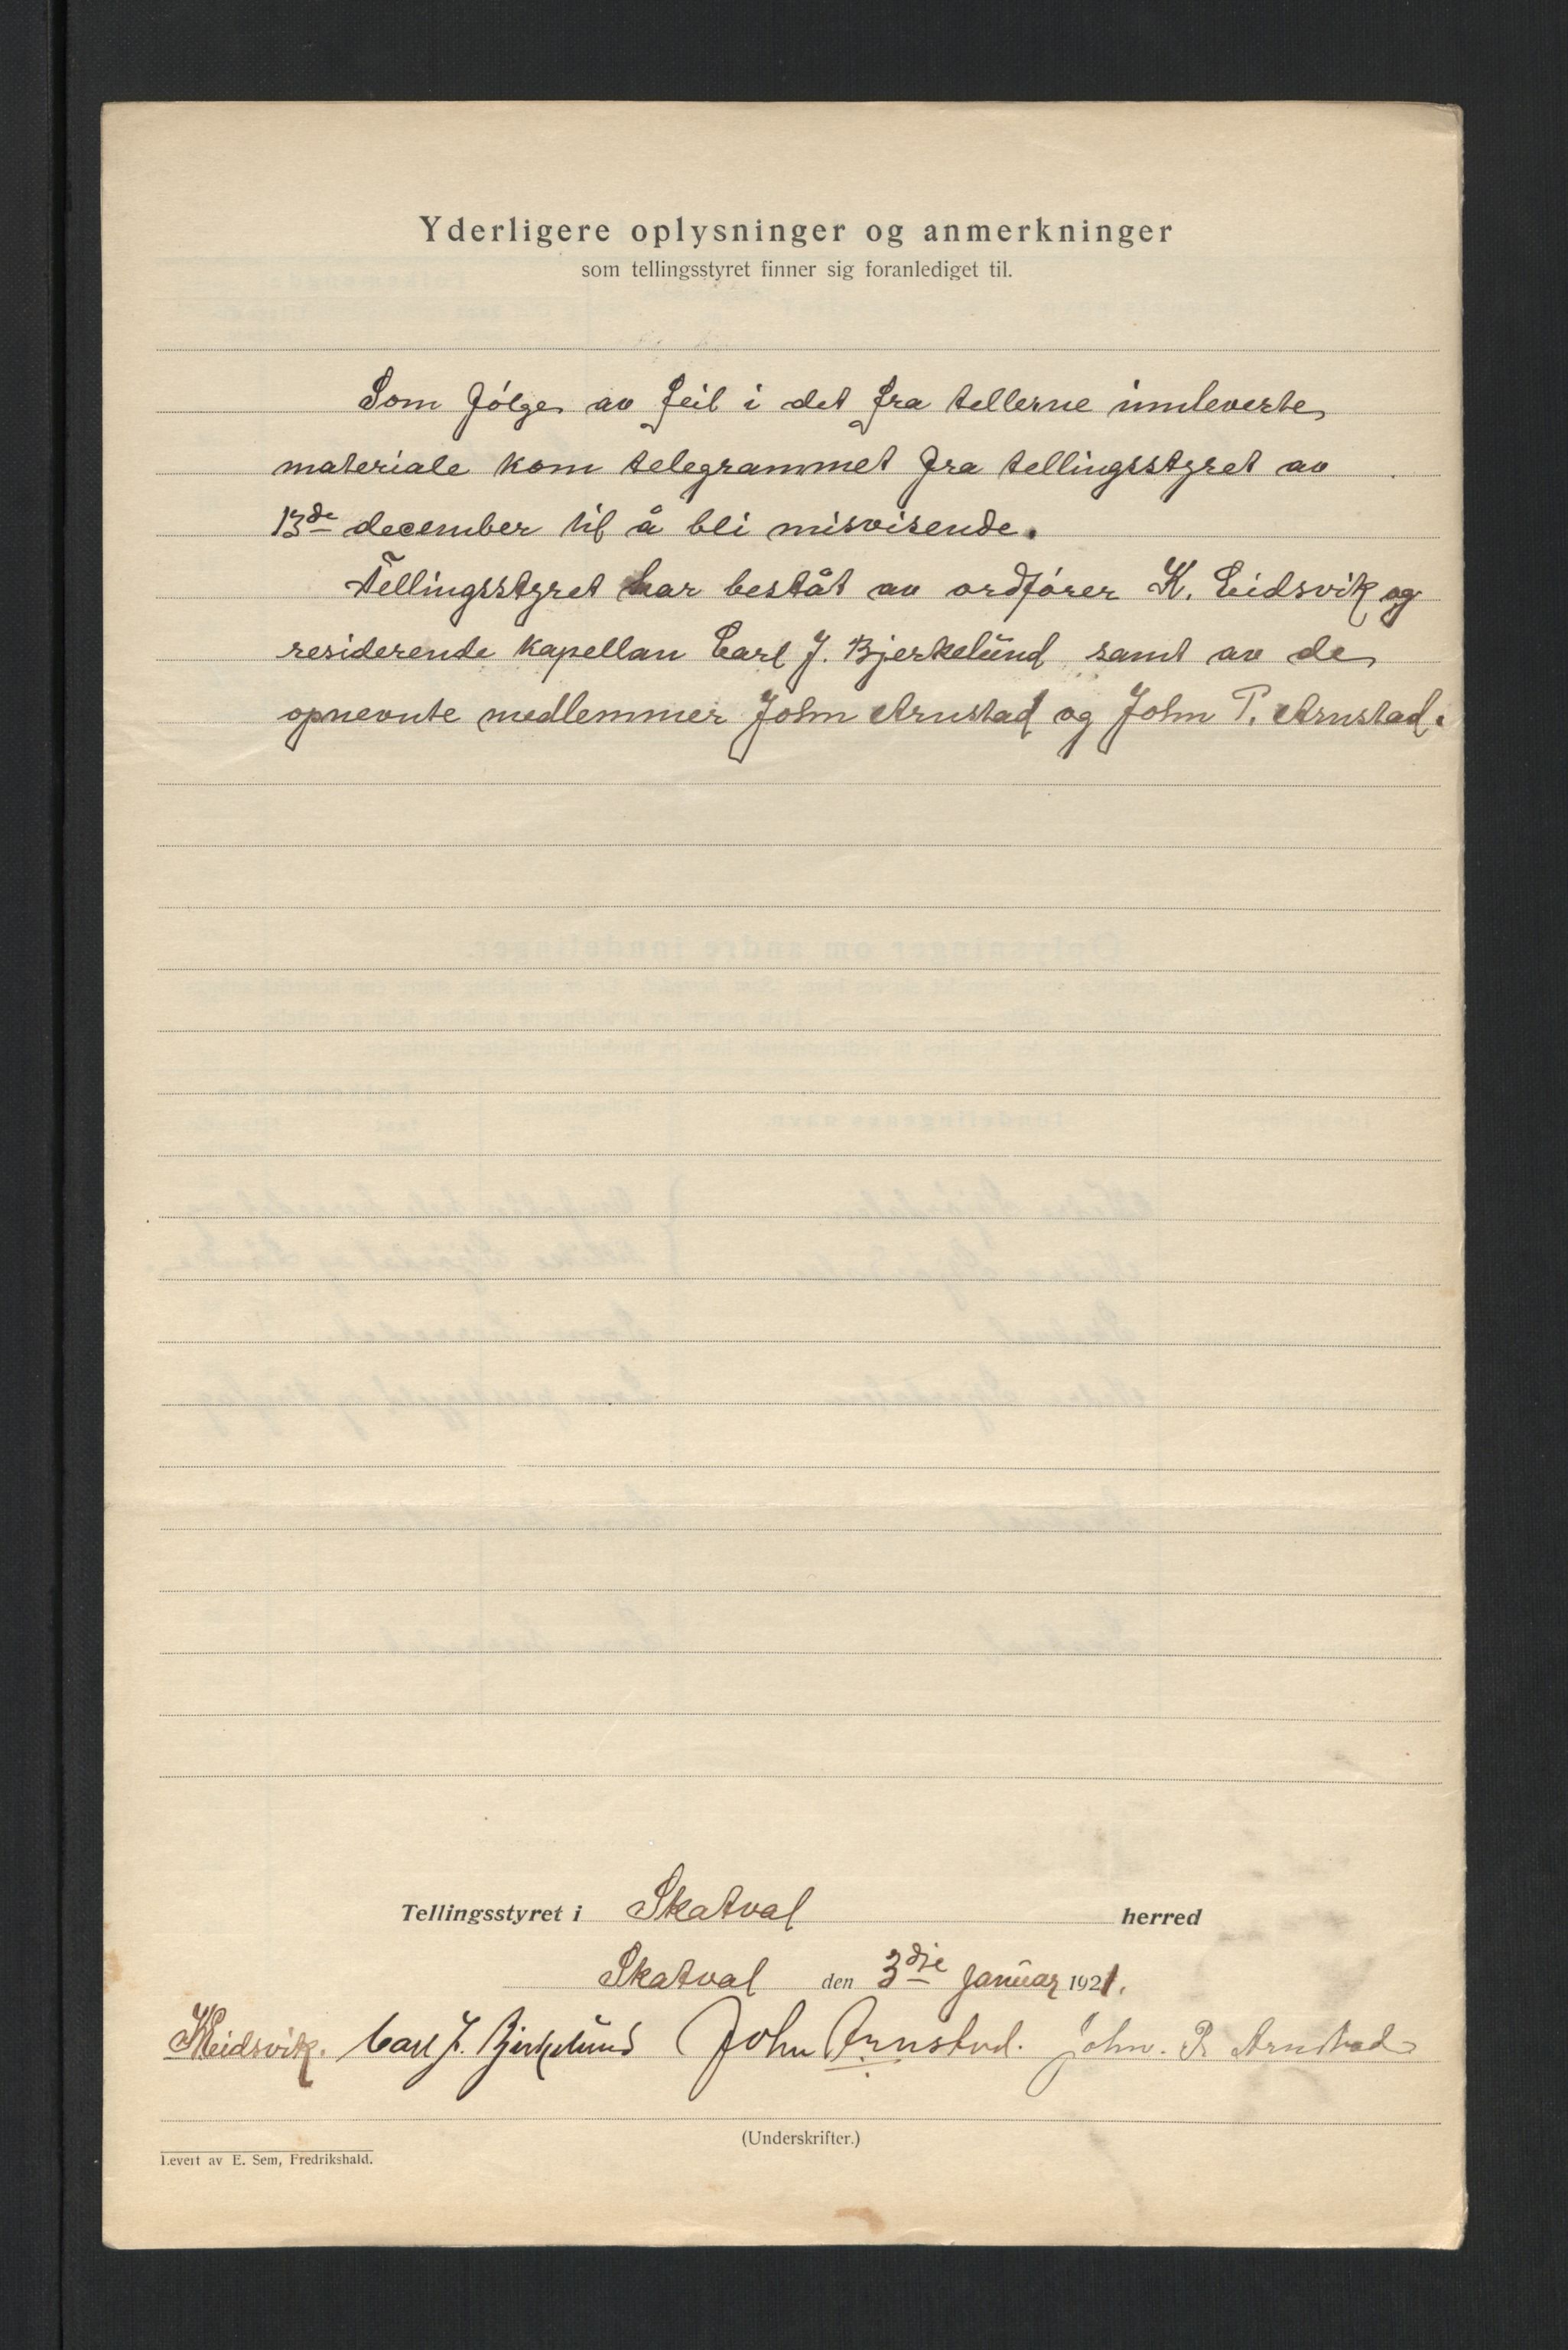 Yderligere oplysninger og anmerkninger
som tellingsstyret finner sig foranlediget til.
Som følge av feil i det fra tellerne innleverte
materiale kom telegrammet fra tellingsstyret av
13de december til å bli misvisende.
Tellingsstyret har beståt av ordfører K. Eidsvik og
residerende kapellan Carl J. Bjerkelund samt av de
opnevnte medlemmer John Arnstad og John P. Arnstad.
Tellingsstyret i Skatval herred
Skatval den 3die januar 1921.
KEidsvik. Carl J. Bjerkelund John Arnstad. John. P. Arnstad
(Underskrifter.)
Levert av E. Sem, Fredrikshald.